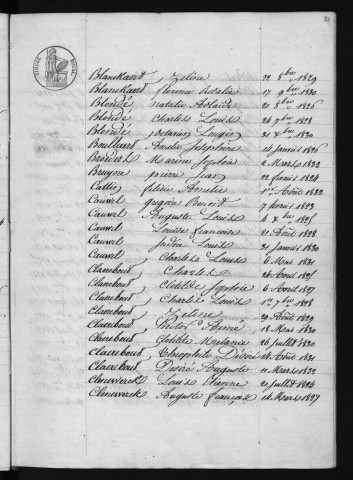 81
TIMBRE ROYAL
Blanckaert Zeline 22 8bre 1829
Blanckaert florence Rosalie 17 9bre 1830
Blondé natalie Adlaïde 21 8bre 1826
Blondé Charles Louis 26 7bre 1828
Blondé octavie 31 Xbre 1830
Boulliard Amelie Josephine 14 Janvier 1826
Brevers Marie Sophie 6 Mars 1832
Bruyne pierre Jean 22 fevrier 1824
Callin filicie Amelie 1er Août 1822
Cauvel gregoire Benoit 7 fevrier 1823
Cauvel Auguste Louis 4 Xbre 1825
Cauvel Louise francoise 31 Août 1828
Cauvel Louis 31 Janvier 1830
Cauvel Charles Louis 6 Mai 1831
Claerebout Charles 26 Avril 1825
Claerebout Clotilde Sophie 6 Avril 1827
Claerebout Charles Louis 1er 7bre 1828
Claerebout Zeline 29 Août 1829
Claerebout Victor Aimé 18 Mai 1830
Claerebout Clotilde Melanie 26 Juillet 1830
Claerebout Theophile Désiré 14 Août 1831
Claerebout Désiré Auguste 11 Mars 1832
Cleuwerck Louis Etienne 20 Juillet 1824
Cleuwerck Auguste françois 14 Mars 1827